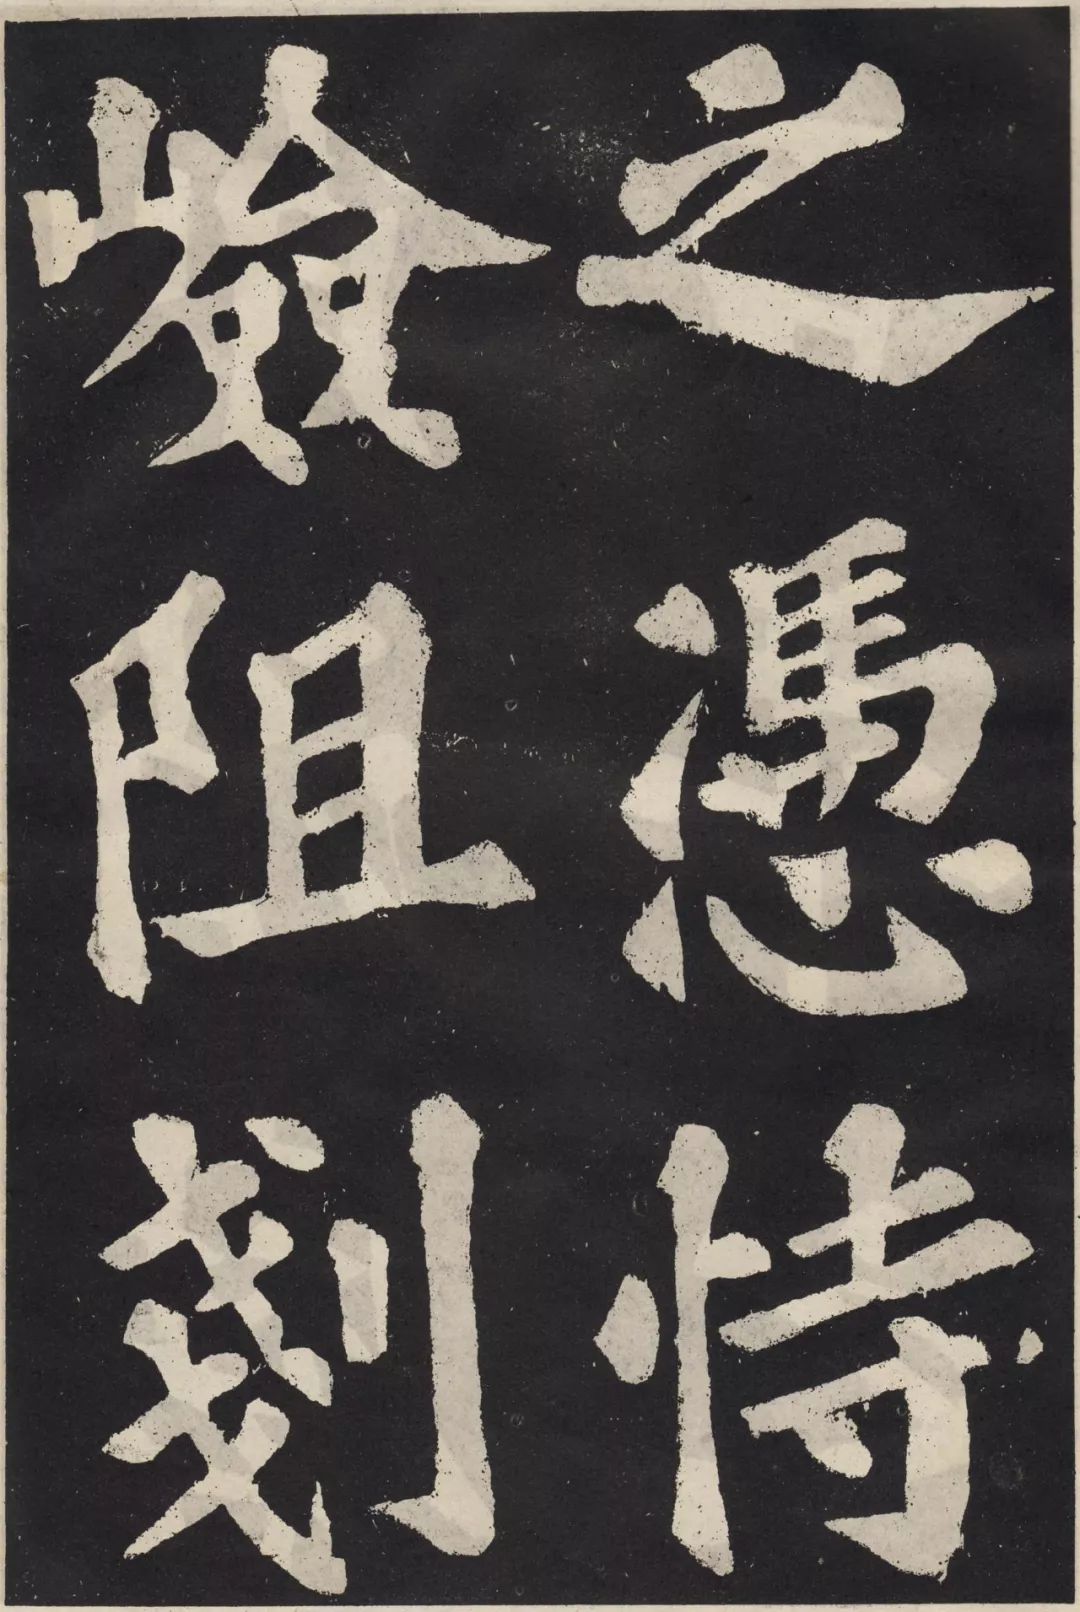 之憑恃
嶮阻剗